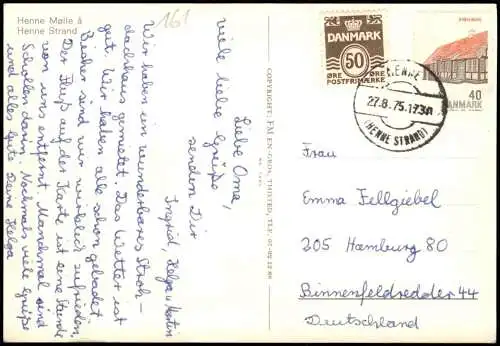 Henne Mølle å
Henne Strand
161
Liebe Oma,
viele liebe Grüße
senden Dir
Ingrid, Helga u. Martin
Wir haben ein wunderbares Stroh-
dachhaus gemietet. Das Wetter ist
gut. Wir haben alle schon gebadet
Bisher sind wir wirklich zufrieden.
Der Fluß auf der Karte ist eine Stunde
von uns entfernt. Manchmal sind
Schollen darin. Nochmals viele Grüße
und alles Gute Deine Helga
COPYRIGHT: FM EN-GROS, THISTED, TLF.
DANMARK
50
ØRE ØRE
POSTFRIMÆRKE
40
DANMARK
HENNE
27.8.75.1730
(HENNE STRAND)
Frau
Emma Fellgiebel
205 Hamburg 80
Binnenfeldredder 44
Deutschland